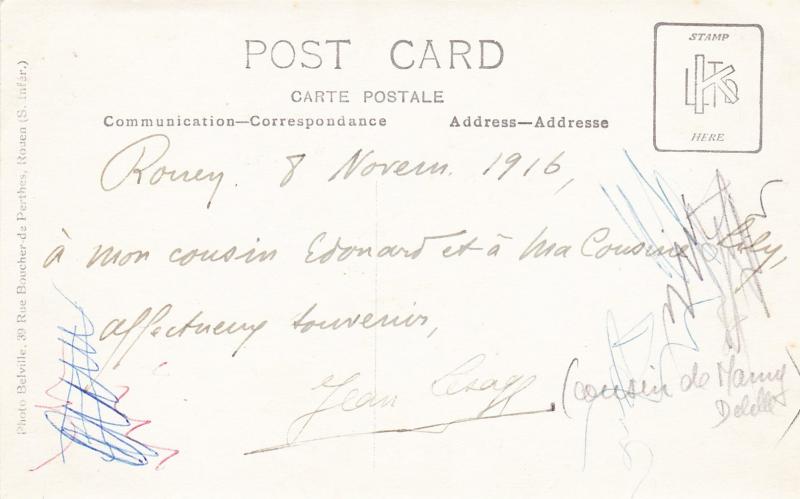 POST CARD
STAMP
K LTD
HERE
CARTE POSTALE
Communication—Correspondance
Address—Addresse
Rouen. 8 Novem. 1916,
à mon cousin Edouard et à Ma Cousine Lily,
affectueux souvenir,
Jean Lesage
(cousin de Mamy
Delelle)
Photo Belville, 39 Rue Boucher-de Perthes, Rouen (S. Infér.)